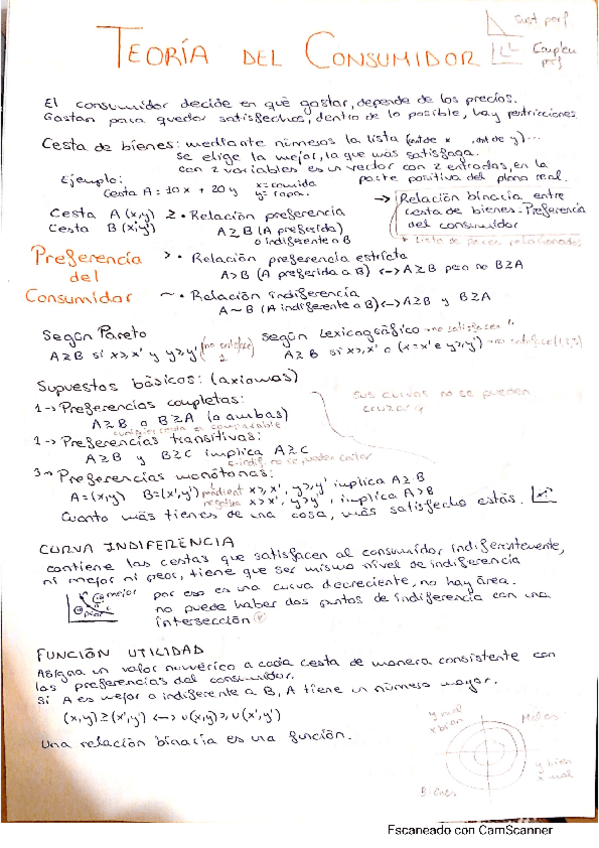 Sust perf
TEORÍA DEL CONSUMIDOR
Complem perf
El consumidor decide en qué gastar, depende de los precios.
Gastan para quedar satisfechos, dentro de lo posible, hay restricciones
Cesta de bienes: mediante números la lista (cant de x , cant de y)...
se elige la mejor, la que más satisfaga.
con 2 variables es un vector con 2 entradas, en la
parte positiva del plano real.
Ejemplo:
Cesta A = 10x + 20y x = comida
y = ropa.
→ Relación binaria entre
cesta de bienes - Preferencia
del consumidor
* Lista de pares relacionados
Cesta A (x,y) ≥ • Relación preferencia
Cesta B (x',y') A ≥ B (A preferida)
o indiferente a B
Preferencia
del
Consumidor
> • Relación preferencia estricta
A > B (A preferida a B) <-> A ≥ B pero no B ≥ A
~ • Relación indiferencia
A ~ B (A indiferente a B) <-> A ≥ B y B ≥ A
Según Pareto
A ≥ B si x ≥ x' y y ≥ y' (no satisface)
Según Lexicográfico → no satisfacen
A ≥ B si x > x' o (x = x' e y ≥ y')
Supuestos básicos: (axiomas)
1 → Preferencias completas:
A ≥ B o B ≥ A (o ambas)
cualquier cesta es comparable
sus curvas no se pueden
cruzar
1 → Preferencias transitivas:
A ≥ B y B ≥ C implica A ≥ C
c-indif. no se pueden cortar
3 → Preferencias monótonas:
A = (x,y) B = (x',y') pendient x ≥ x', y ≥ y' implica A ≥ B
negativa x > x', y > y', implica A > B
Cuanto más tienes de una cosa, más satisfecho estás.
CURVA INDIFERENCIA
contiene las cestas que satisfacen al consumidor indiferentemente,
ni mejor ni peor, tiene que ser mismo nivel de indiferencia
mejor
peor
por eso es una curva decreciente, no hay área.
no puede haber dos puntos de indiferencia con una
intersección
FUNCIÓN UTILIDAD
Asigna un valor numérico a cada cesta de manera consistente con
las preferencias del consumidor.
Si A es mejor o indiferente a B, A tiene un número mayor.
(x,y) ≥ (x',y') <-> u(x,y) ≥ u(x',y')
Una relación binaria es una función.
y mal
x bien
Males
y bien
x mal
Bienes
Escaneado con CamScanner